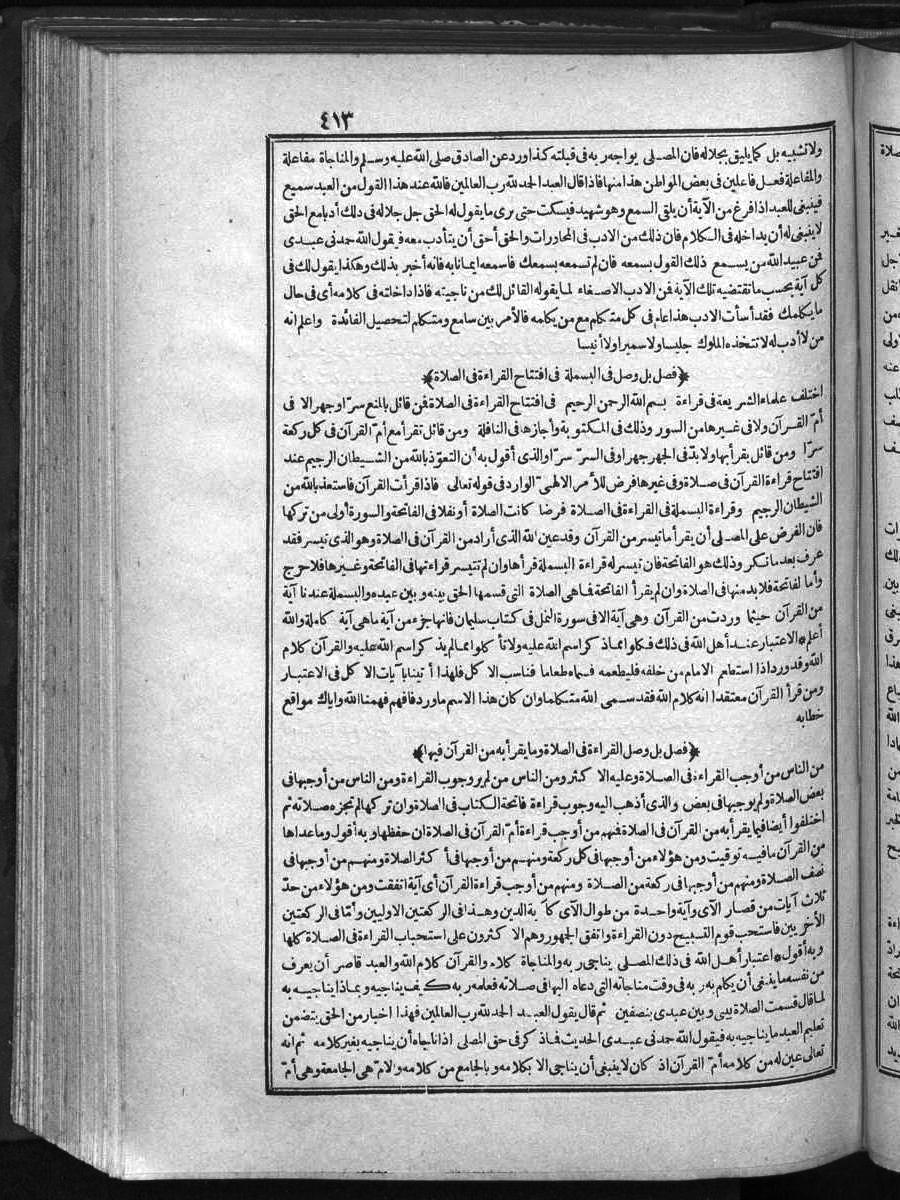 ٤١٣
ولا تشبيه بل كما يليق بجلاله فان المصلى يواجه ربه فى قبلته كذا ورد عن الصادق صلى الله عليه وسلم والمناجاة مفاعلة
والمفاعلة فعل فاعلين فى بعض المواطن هذا منها فاذا قال العبد الحمد لله رب العالمين فالله عند هذا القول من العبد سميع
فينبغى للعبد اذا فرغ من الآية أن يلقى السمع وهو شهيد فيسكت حتى يرى ما يقول له الحق جل جلاله فى ذلك أدبا مع الحق
لا ينبغى له أن يداخله فى الكلام فان ذلك من الادب فى المحاورات والحق أحق أن يتأدب معه فيقول الله حمدنى عبدى
فمن عبيد الله من يسمع ذلك القول بسمعه فان لم تسمعه بسمعك فاسمعه ايمانا به فانه أخبر بذلك وهكذا يقول لك فى
كل آية بحسب ما تقتضيه تلك الآية فمن الادب الاصغاء لما يقوله القائل لك من ناجيته فاذا داخلته فى كلامه أى فى حال
ما يكلمك فقد أسأت الادب هذا عام فى كل متكلم مع من يكلمه فالأمر بين سامع ومتكلم لتحصيل الفائدة واعلم انه
من لا أدب له لا تتخذه الملوك جليسا ولا سميرا ولا أنيسا
﴿فصل بل وصل فى البسملة فى افتتاح القراءة فى الصلاة﴾
اختلف علماء الشريعة فى قراءة بسم الله الرحمن الرحيم فى افتتاح القراءة فى الصلاة فمن قائل بالمنع سرّا وجهرا لا فى
أمّ القرآن ولا فى غيرها من السور وذلك فى المكتوبة وأجازها فى النافلة ومن قائل تقرأ مع أمّ القرآن فى كل ركعة
سرّا ومن قائل يقرأ بها ولا بدّ فى الجهر جهرا وفى السرّ سرّا والذى أقول به أن التعوّذ بالله من الشيطان الرجيم عند
افتتاح قراءة القرآن فى صلاة وفى غيرها فرض للأمر الالهىّ الوارد فى قوله تعالى فاذا قرأت القرآن فاستعذ بالله من
الشيطان الرجيم وقراءة البسملة فى القراءة فى الصلاة فرضا كانت الصلاة أو نفلا فى الفاتحة والسورة أولى من تركها
فان الفرض على المصلى أن يقرأ ما تيسر من القرآن وقد عين الله الذى أراد من القرآن فى الصلاة وهو الذى تيسر فقد
عرف بعد ما نكر وذلك هو الفاتحة فان تيسر له قراءة البسملة قرأها وان لم تتيسر قراءتها فى الفاتحة وغيرها فلا حرج
وأما الفاتحة فلا بد منها فى الصلاة وان لم يقرأ الفاتحة فما هى الصلاة التى قسمها الحق بينه وبين عبده والبسملة عندنا آية
من القرآن حيثما وردت من القرآن وهى آية الا فى سورة النمل فى كتاب سليمان فانها جزء من آية ما هى آية كاملة والله
أعلم * الاعتبار عند أهل الله فى ذلك فكلوا مما ذكر اسم الله عليه ولا تأكلوا مما لم يذكر اسم الله عليه والقرآن كلام
الله وقد ورد اذا استطعم الامام من خلفه فليطعمه فسماه طعاما فناسب الاكل فلهذا أتينا بآيات الاكل فى الاعتبار
ومن قرأ القرآن معتقدا انه كلام الله فقد سمى الله متكلما وان كان هذا الاسم ما ورد فافهم فهمنا الله واياك مواقع
خطابه
﴿فصل بل وصل القراءة فى الصلاة وما يقرأ به من القرآن فيها﴾
من الناس من أوجب القراءة فى الصلاة وعليه الاكثر ومن الناس من لم ير وجوب القراءة ومن الناس من أوجبها فى
بعض الصلاة ولم يوجبها فى بعض والذى أذهب اليه وجوب قراءة فاتحة الكتاب فى الصلاة وان تركها لم تجزه صلاته ثم
اختلفوا أيضا فيما يقرأ به من القرآن فى الصلاة فمنهم من أوجب قراءة أمّ القرآن فى الصلاة ان حفظها وبه أقول وما عداها
من القرآن ما فيه توقيت ومن هؤلاء من أوجبها فى كل ركعة ومنهم من أوجبها فى أكثر الصلاة ومنهم من أوجبها فى
نصف الصلاة ومنهم من أوجبها فى ركعة من الصلاة ومنهم من أوجب قراءة القرآن أى آية اتفقت ومن هؤلاء من حدّ
ثلاث آيات من قصار الآى وآية واحدة من طوال الآى كآية الدين وهذا فى الركعتين الاوليين وأمّا فى الركعتين
الأخريين فاستحب قوم التسبيح دون القراءة واتفق الجمهور وهم الاكثرون على استحباب القراءة فى الصلاة كلها
وبه أقول * اعتبار أهل الله فى ذلك المصلى يناجى ربه والمناجاة كلام والقرآن كلام الله والعبد قاصر أن يعرف
من نفسه ما ينبغى أن يكلم به ربه فى وقت مناجاته التى دعاه اليها فى صلاته فعلمه ربه كيف يناجيه وبماذا يناجيه به
لما قال قسمت الصلاة بينى وبين عبدى بنصفين ثم قال يقول العبد الحمد لله رب العالمين فهذا اخبار من الحق يتضمن
تعليم العبد ما يناجيه به فيقول الله حمدنى عبدى الحديث فما ذكر فى حق المصلى اذا ناجاه أن يناجيه بغير كلامه ثم انه
تعالى عين له من كلامه أمّ القرآن اذ كان لا ينبغى أن يناجى الا بكلامه وبالجامع من كلامه والامّ هى الجامعة وهى أمّ